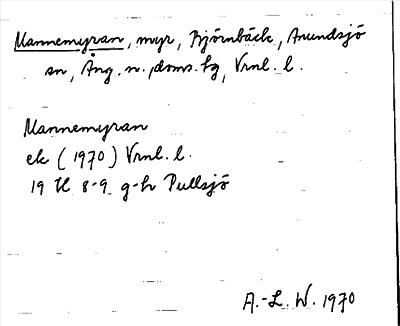 Mannemyran, myr, Björnbäck, Anundsjö
sn, Ång. n. doms. hg, Vrnl. l.
Mannemyran
ek (1970) Vrnl. l.
19 H 8-9 g-h Pullsjö
A.-L. W. 1970